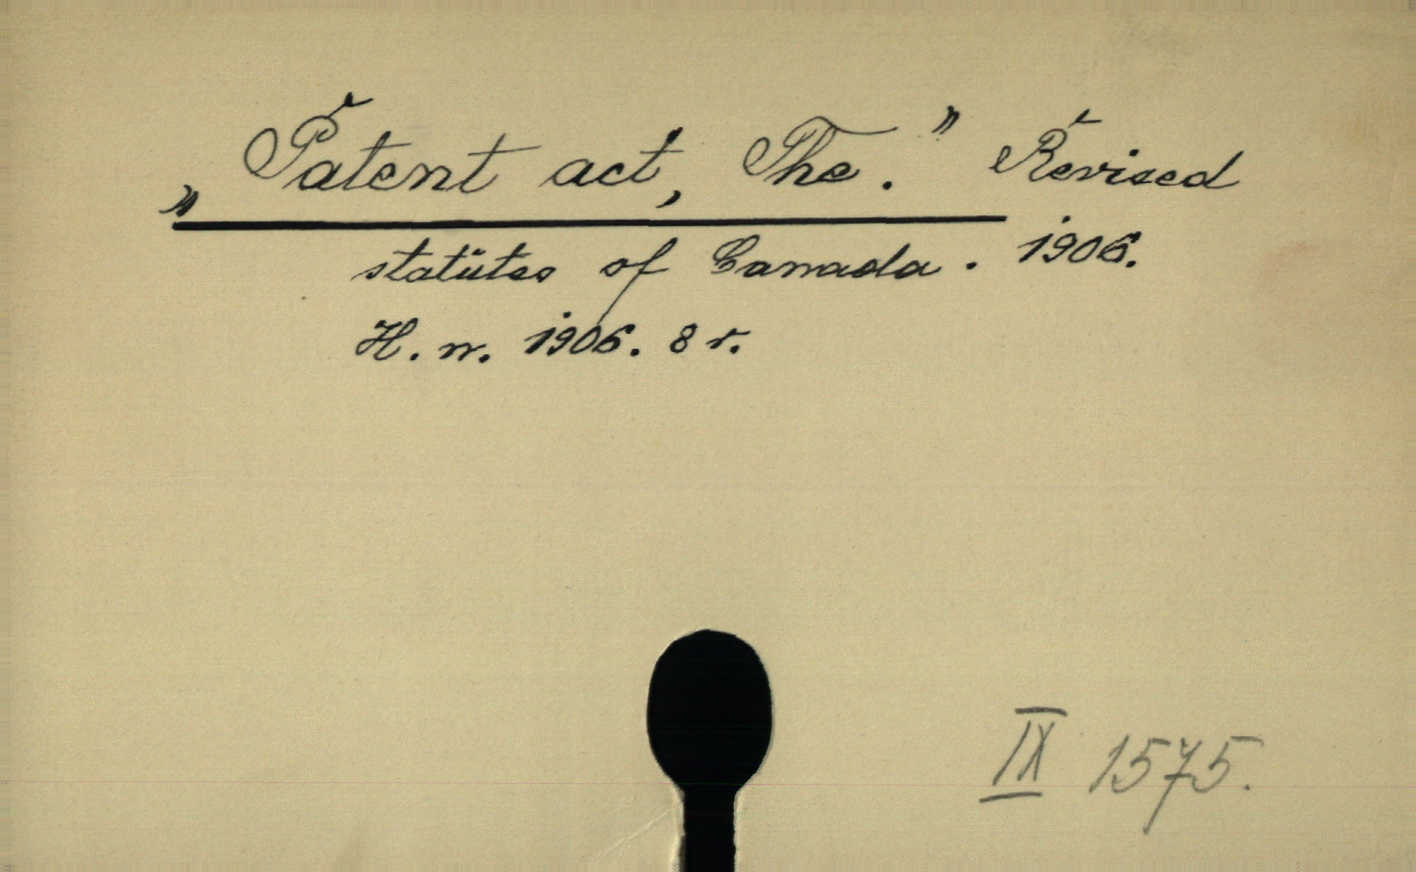 „Patent act, The.” Revised
statutes of Canada. 1906.
H. n. 1906. 8 r.
IX 1575.